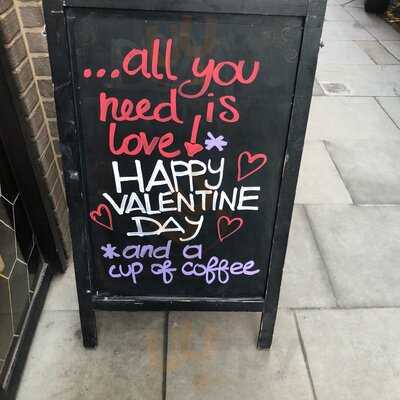 ...all you
need is
love! *
HAPPY
VALENTINE
DAY
*and a
cup of coffee